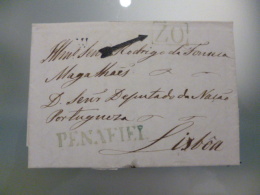 20
Illmo Senr Rodrigo da Fonseca
Magalhães
D. Senr Deputado da Nação
Portugueza
PENAFIEL
Lisbôa